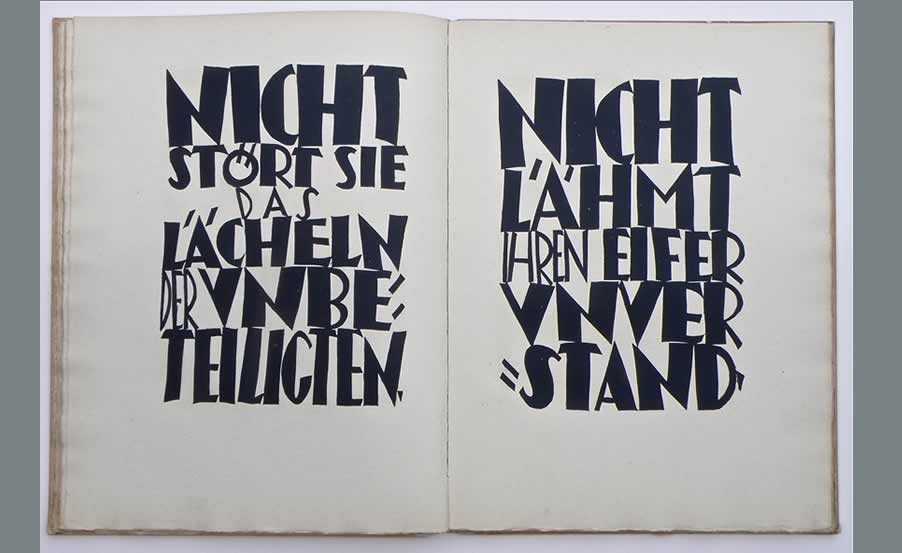 NICHT
STÖRT SIE
DAS
LÄCHELN
DER VNBE-
TEILIGTEN.
NICHT
LÄHMT
IHREN EIFER
VNVER
=STAND.